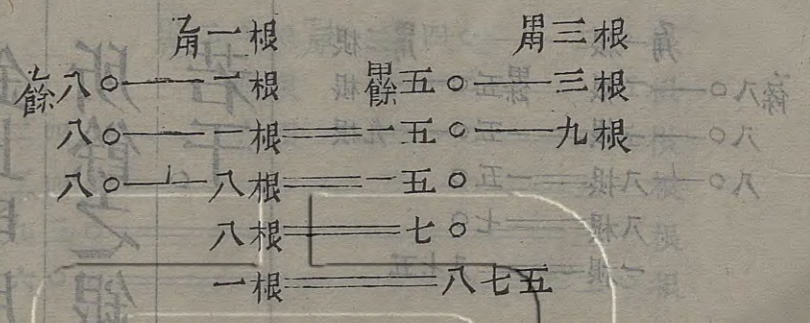 乙用一根 甲用三根
乙餘八〇——一根 甲餘五〇——三根
八〇——一根══一五〇——九根
八〇—⊥—八根══一五〇
八根══七〇
一根══八七五